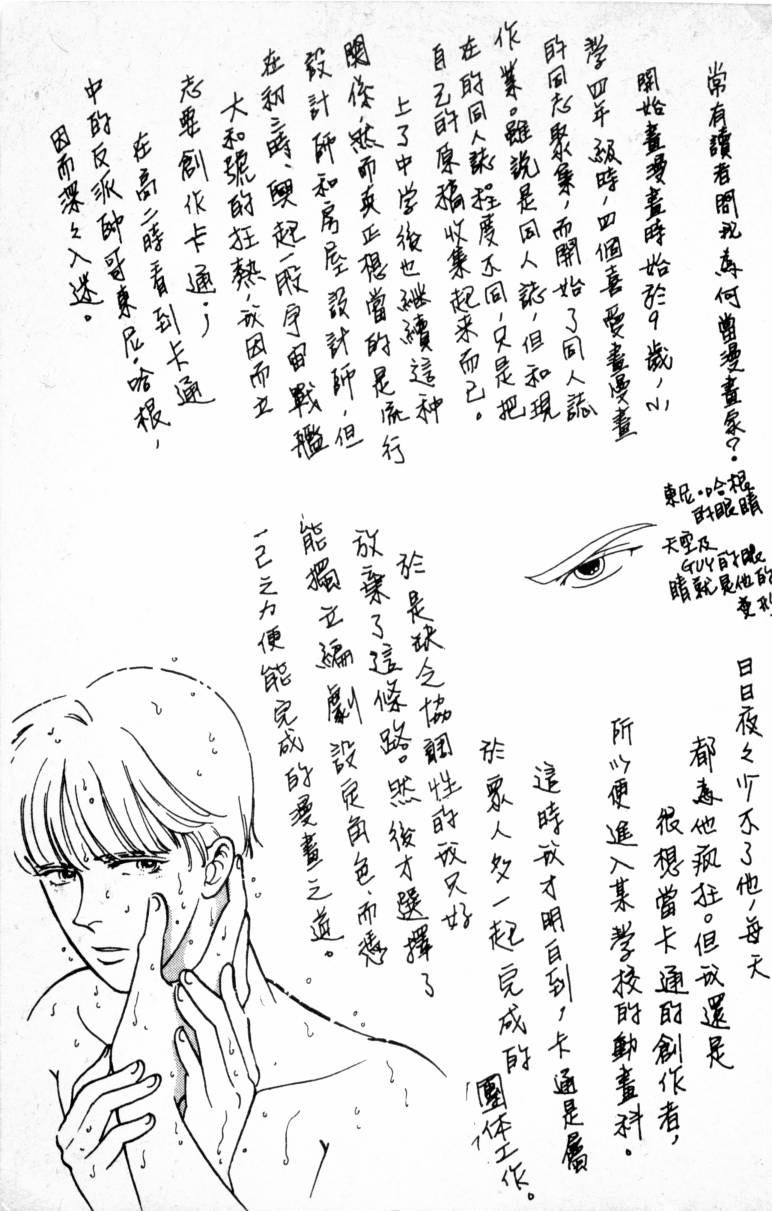 常有讀者問我為何當漫畫家？
開始畫漫畫時始於9歲，小
學四年級時，四個喜愛畫漫畫
的同志聚集，而開始了同人誌
作業。雖說是同人誌，但和現
在的同人誌程度不同，只是把
自己的原稿收集起来而已。
上了中学後也継續這种
関係，然而真正想當的是流行
設計師和房屋設計師，但
在初二時，興起一股宇宙戰艦
大和號的狂熱，我因而立
志要創作卡通；
在高二時看到卡通
中的反派帥哥東尼·哈根，
因而深々入迷。
東尼·哈根
的眼睛
天空及
GUY的眼
睛就是他的
變形
日日夜々少不了他，每天
都為他瘋狂。但我還是
很想當卡通的創作者，
所以便進入某學校的動畫科。
這時我才明白到，卡通是屬
於眾人夕一起完成的
團体工作。
於是缺乏協調性的我只好
放棄了這條路。然後才選擇了
能獨立編劇設定角色，而憑
一己之力便能完成的漫畫之道。